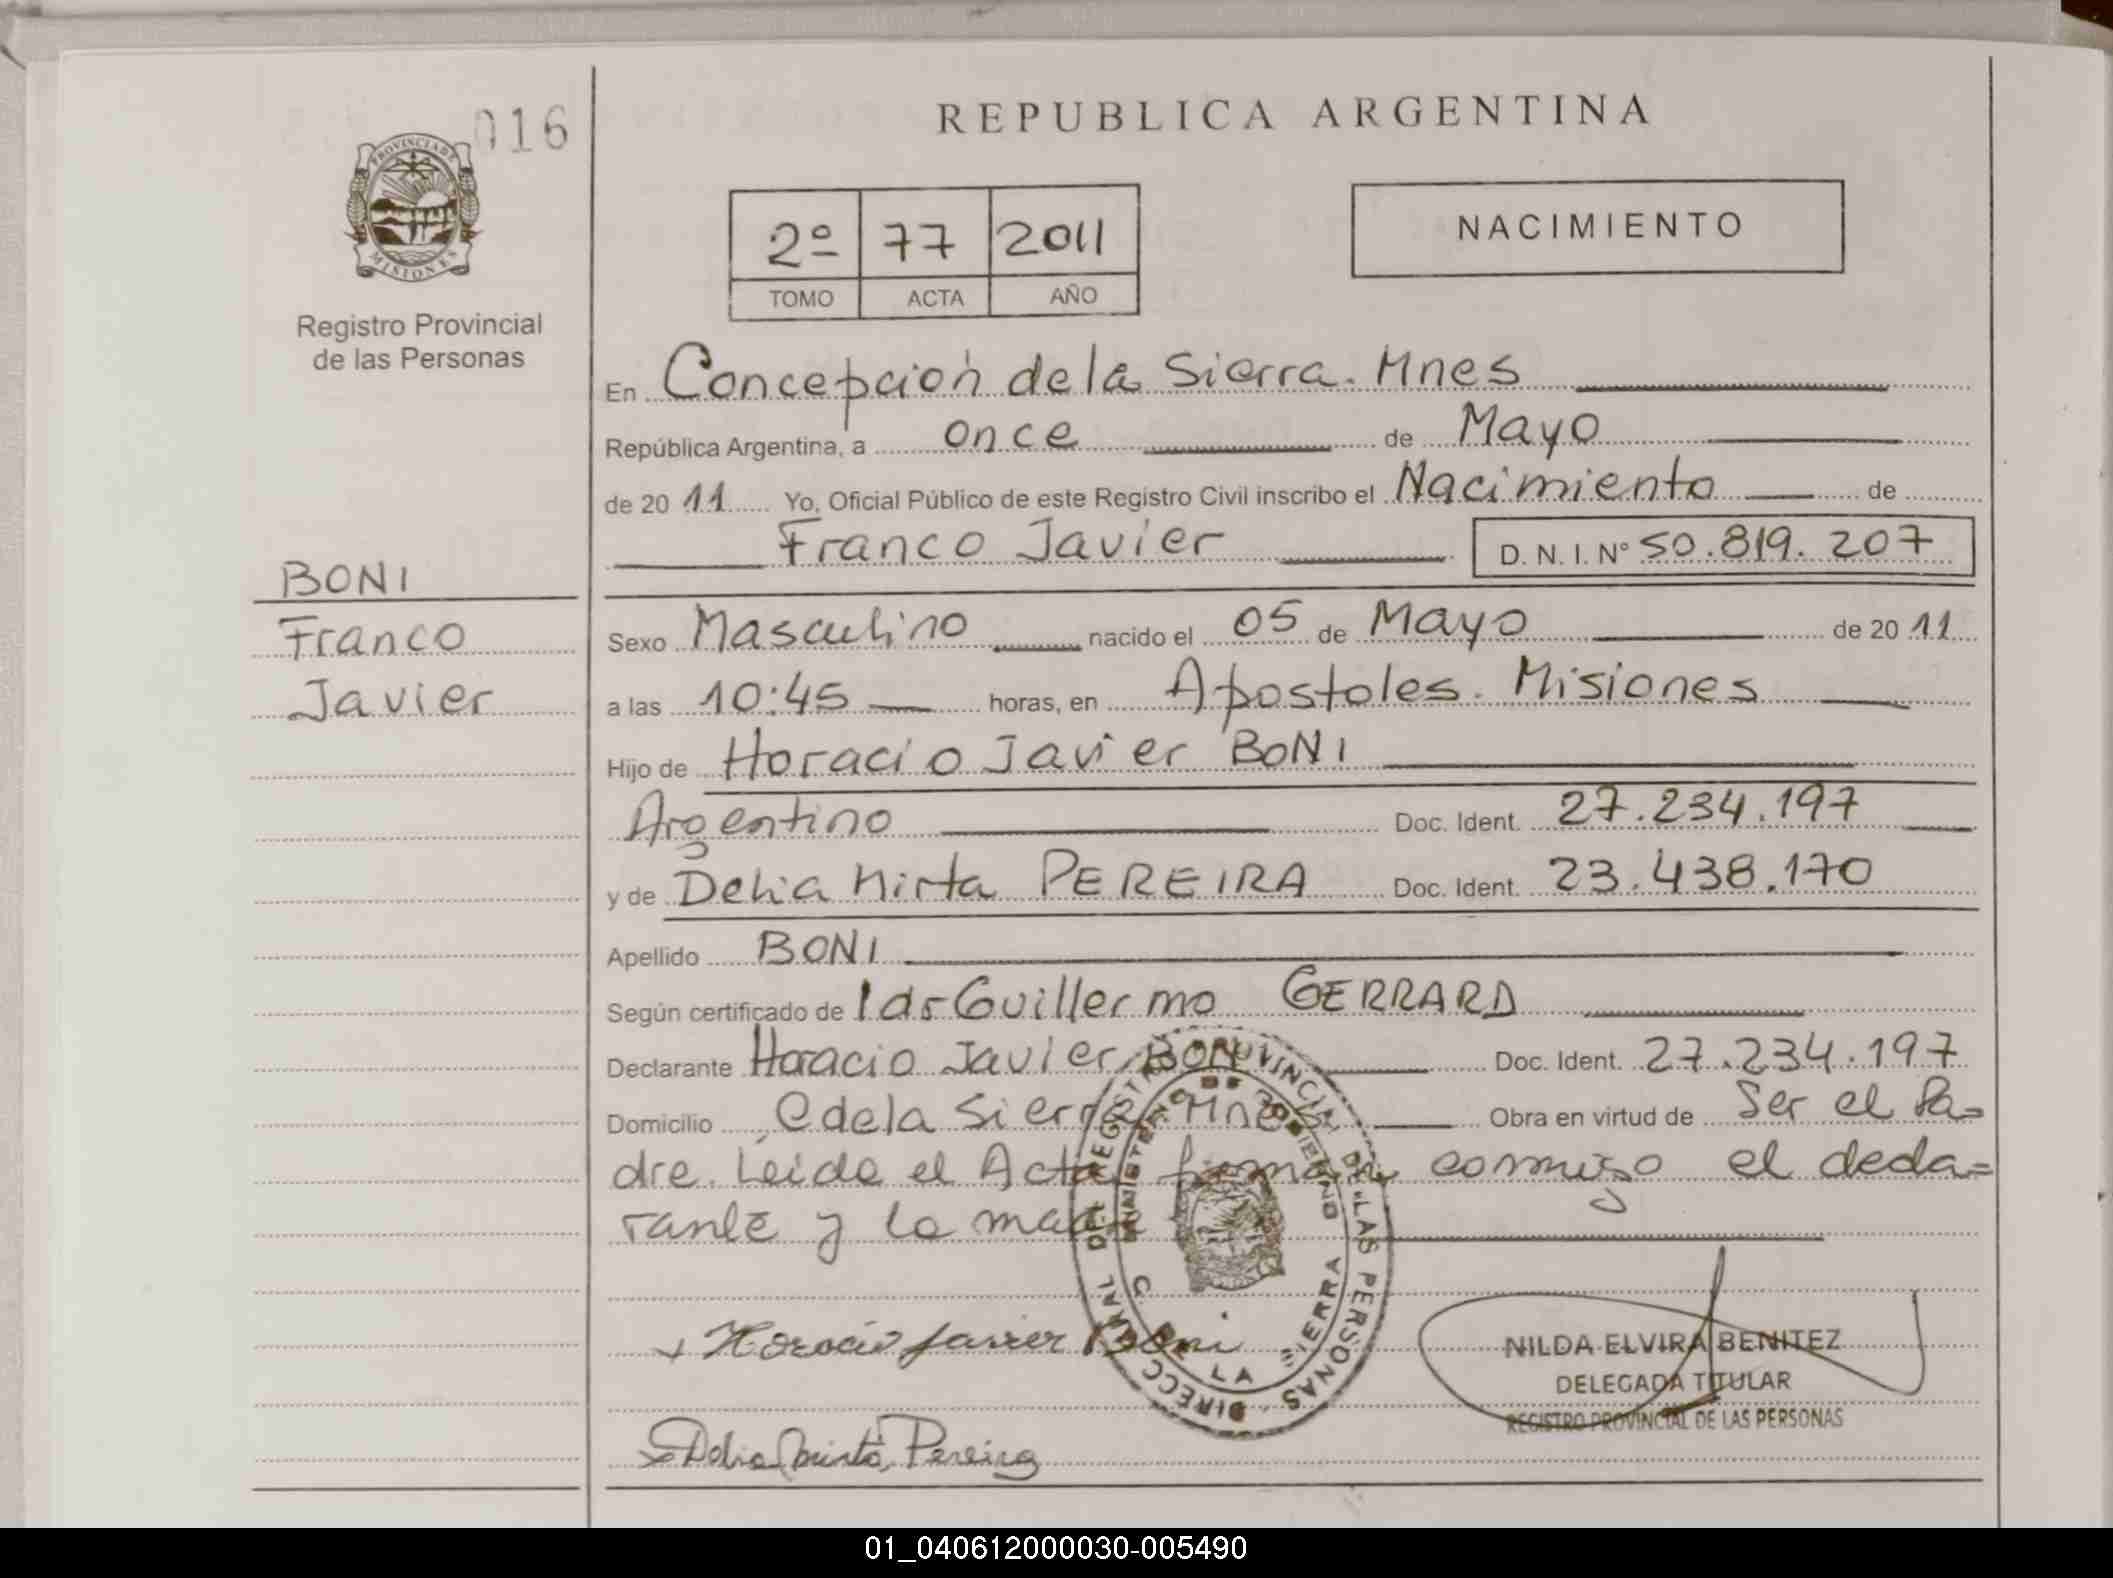 016
PROVINCIA DE
MISIONES
Registro Provincial
de las Personas
BONI
Franco
Javier
REPUBLICA ARGENTINA
2º 77 2011
TOMO ACTA AÑO
NACIMIENTO
En Concepción de la Sierra. Mnes
República Argentina, a once de Mayo
de 20 11 Yo, Oficial Público de este Registro Civil inscribo el Nacimiento de
Franco Javier D. N. I. Nº 50.819.207
Sexo Masculino nacido el 05 de Mayo de 20 11
a las 10:45 horas, en Apostoles. Misiones
Hijo de Horacio Javier BONI
Argentino Doc. Ident. 27.234.197
y de Delia Mirta PEREIRA Doc. Ident. 23.438.170
Apellido BONI
Según certificado de Guillermo GERRARD
Declarante Horacio Javier BONI Doc. Ident. 27.234.197
Domicilio C de la Sierra Mnes Obra en virtud de Ser el Pa=
dre. Leida el Acta firman conmigo el decla=
rante y la madre
DIRECC GRAL DEL REGISTRO PROVINCIAL DE LAS PERSONAS
MINISTERIO DE GOBIERNO
C. DE LA SIERRA
Horacio Javier Boni
Delia Mirta Pereira
NILDA ELVIRA BENITEZ
DELEGADA TITULAR
REGISTRO PROVINCIAL DE LAS PERSONAS
01_040612000030-005490